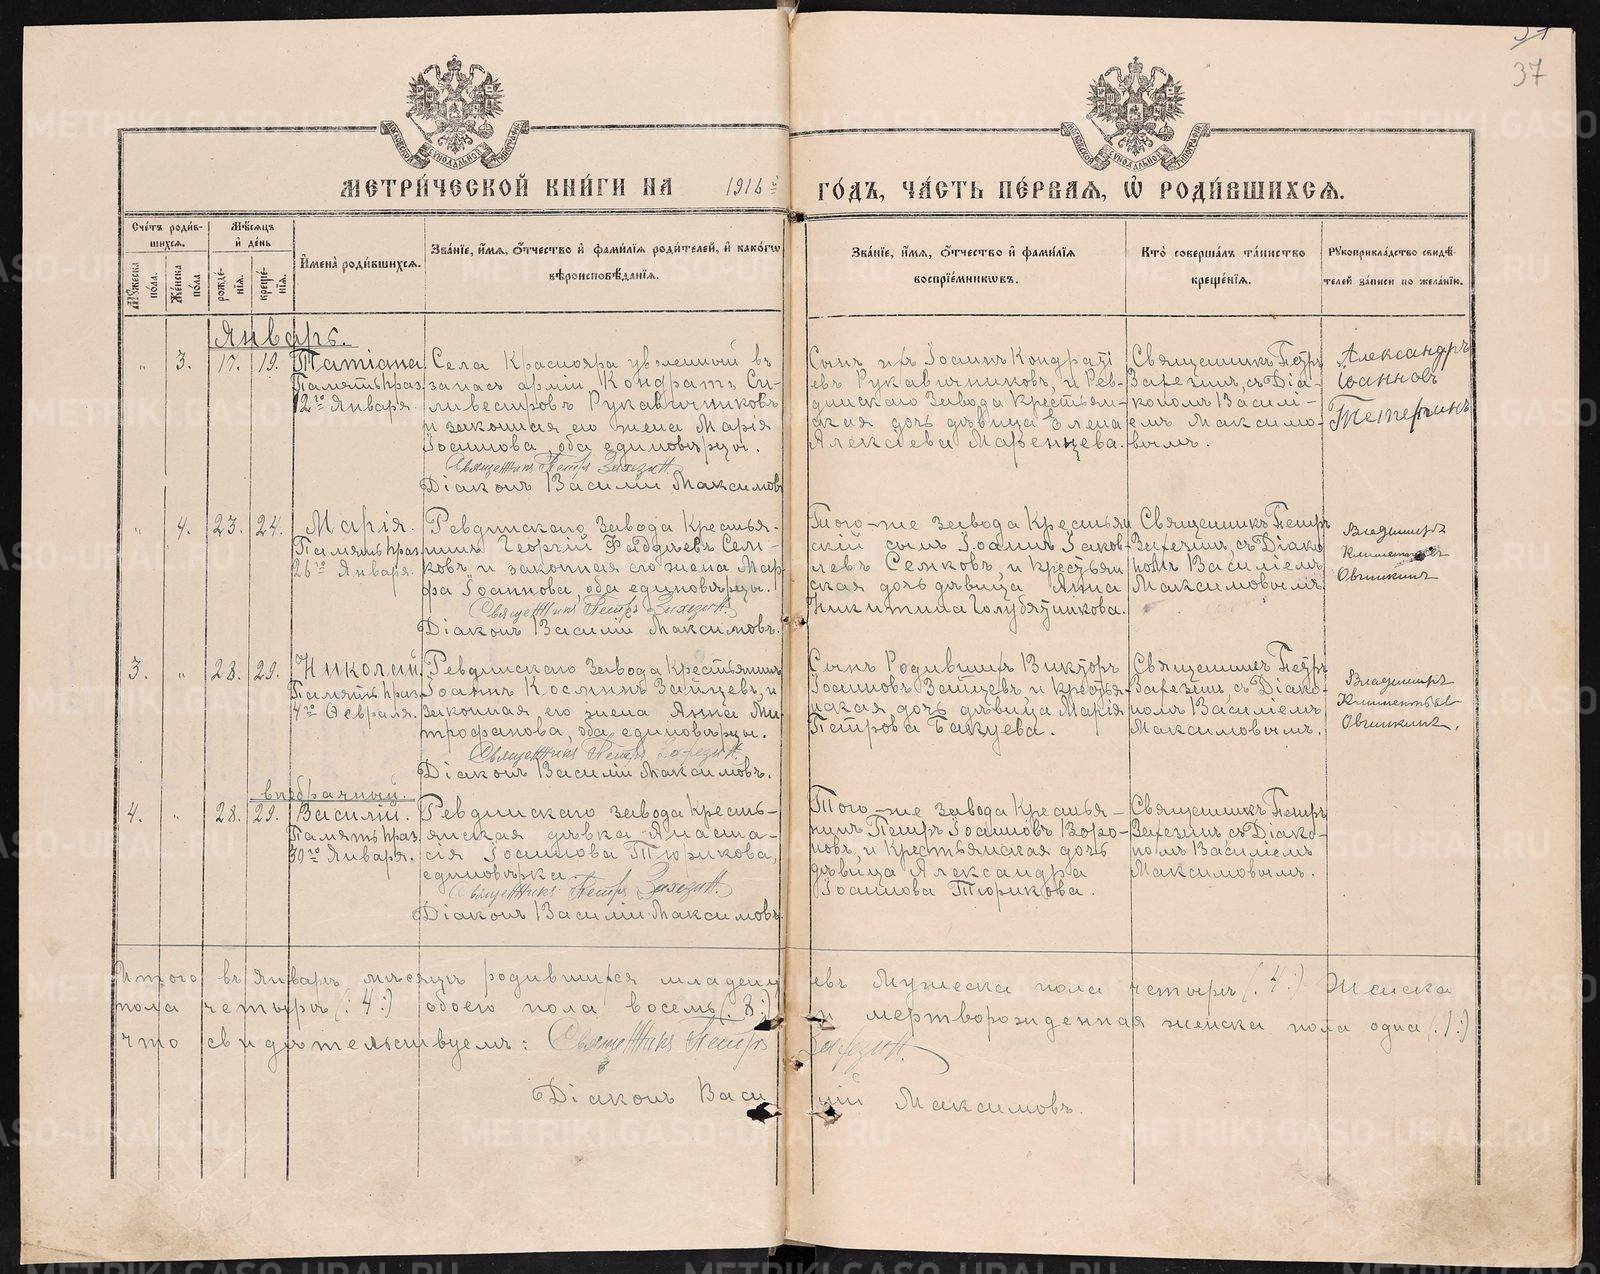 37
МЕТРИ́ЧЕСКОЙ КНИ́ГИ НА 1916 й ГО́ДЪ, ЧА́СТЬ ПЕ́РВАѦ, Ѡ҆ РОДИ́ВШИХСѦ.
Сче́тъ роди́в-
шихсѧ.
Мꙋ́жеска пола.
Же́нска по́ла.
Мѣ́сѧцъ
и҆ де́нь
рожде́-
нїѧ.
креще́-
нїѧ.
И҆мена̀ роди́вшихсѧ.
Зва́нїе, и҆́мѧ, ѻ҆́тчество и҆ фами́лїѧ роди́телей, и҆ како́гѡ
вѣроисповѣ́данїѧ.
Зва́нїе, и҆́мѧ, ѻ҆́тчество и҆ фами́лїѧ
воспрїе́мникѡвъ.
Кто̀ соверша́лъ та́инство
креще́нїѧ.
Рꙋкоприкла́дство свидѣ́-
телей за́писи по жела́нїю.
Январь.
„ 3. 17. 19.
Татіана
Память праз.
12го Января
Села Краснояра уволенный въ
запасъ арміи Кондратъ Си-
ливестровъ Рукавичниковъ
и законная его жена Марія
Іоаннова, оба единовѣрцы.
Священникъ Петръ
Діаконъ Василій Максимовъ
Сынъ ихъ Іоаннъ Кондраті
евъ Рукавичниковъ, и Рев-
динскаго Завода крестьян-
ская дочь дѣвица Елена
Алексіева Маренцева.
Священникъ Петръ
съ Діа-
кономъ Василі-
емъ Максимо-
вымъ.
Александръ
Іоанновъ
Тетеринъ
„ 4. 23. 24.
Марія.
Память праз.
26го Января.
Ревдинскаго Завода Крестья-
нинъ Георгій Фаддѣевъ Сен-
ковъ и законная его жена Мар-
фа Іоаннова, оба единовѣрцы.
Священникъ Петръ
Діаконъ Василій Максимовъ.
Того-же завода Крестьян
скій сынъ Іоаннъ Іаков-
левъ Сенковъ, и крестьян
ская дочь дѣвица Анна
Никитина Голубятникова.
Священникъ Петръ
съ Діако
номъ Василіемъ
Максимовымъ.
Владимиръ
Климентьевъ
Овчинкинъ
3. „ 28. 29.
Николай.
Память праз.
4го Февраля.
Ревдинскаго Завода Крестьянинъ
Іоаннъ Косминъ Зайцевъ, и
законная его жена Анна Ми-
трофанова, оба единовѣрцы.
Священникъ Петръ
Діаконъ Василій Максимовъ.
Сынъ Родившихъ Викторъ
Іоанновъ Зайцевъ и крестья-
нская дочь дѣвица Марія
Петрова Бакуева.
Священникъ Петръ
съ Діако-
номъ Василіемъ
Максимовымъ.
Владимиръ
Климентьевъ
Овчинкинъ.
внѣбрачный.
4. „ 28. 29.
Василій.
Память праз.
30го Января.
Ревдинскаго завода Кресть-
янская дѣвка Анаста-
сія Іоаннова Тюрикова,
единовѣрка.
Священникъ Петръ
Діаконъ Василій Максимовъ.
Того-же завода Крестья-
нинъ Петръ Іоанновъ Воро-
новъ, и Крестьянская дочь
дѣвица Александра
Іоаннова Тюрикова.
Священникъ Петръ
съ Діако-
номъ Василіемъ
Максимовымъ.
Итого въ Январѣ мѣсяцѣ родившихся младенцевъ Мужеска пола четыре (:4:) Женска
пола четыре (:4:) обоего пола восемь (:8:) и мертворожденная женска пола одна (:1:)
что свидѣтельствуемъ: Священникъ Петръ
Діаконъ Василій Максимовъ.
METRIKI.GASO-URAL.RU